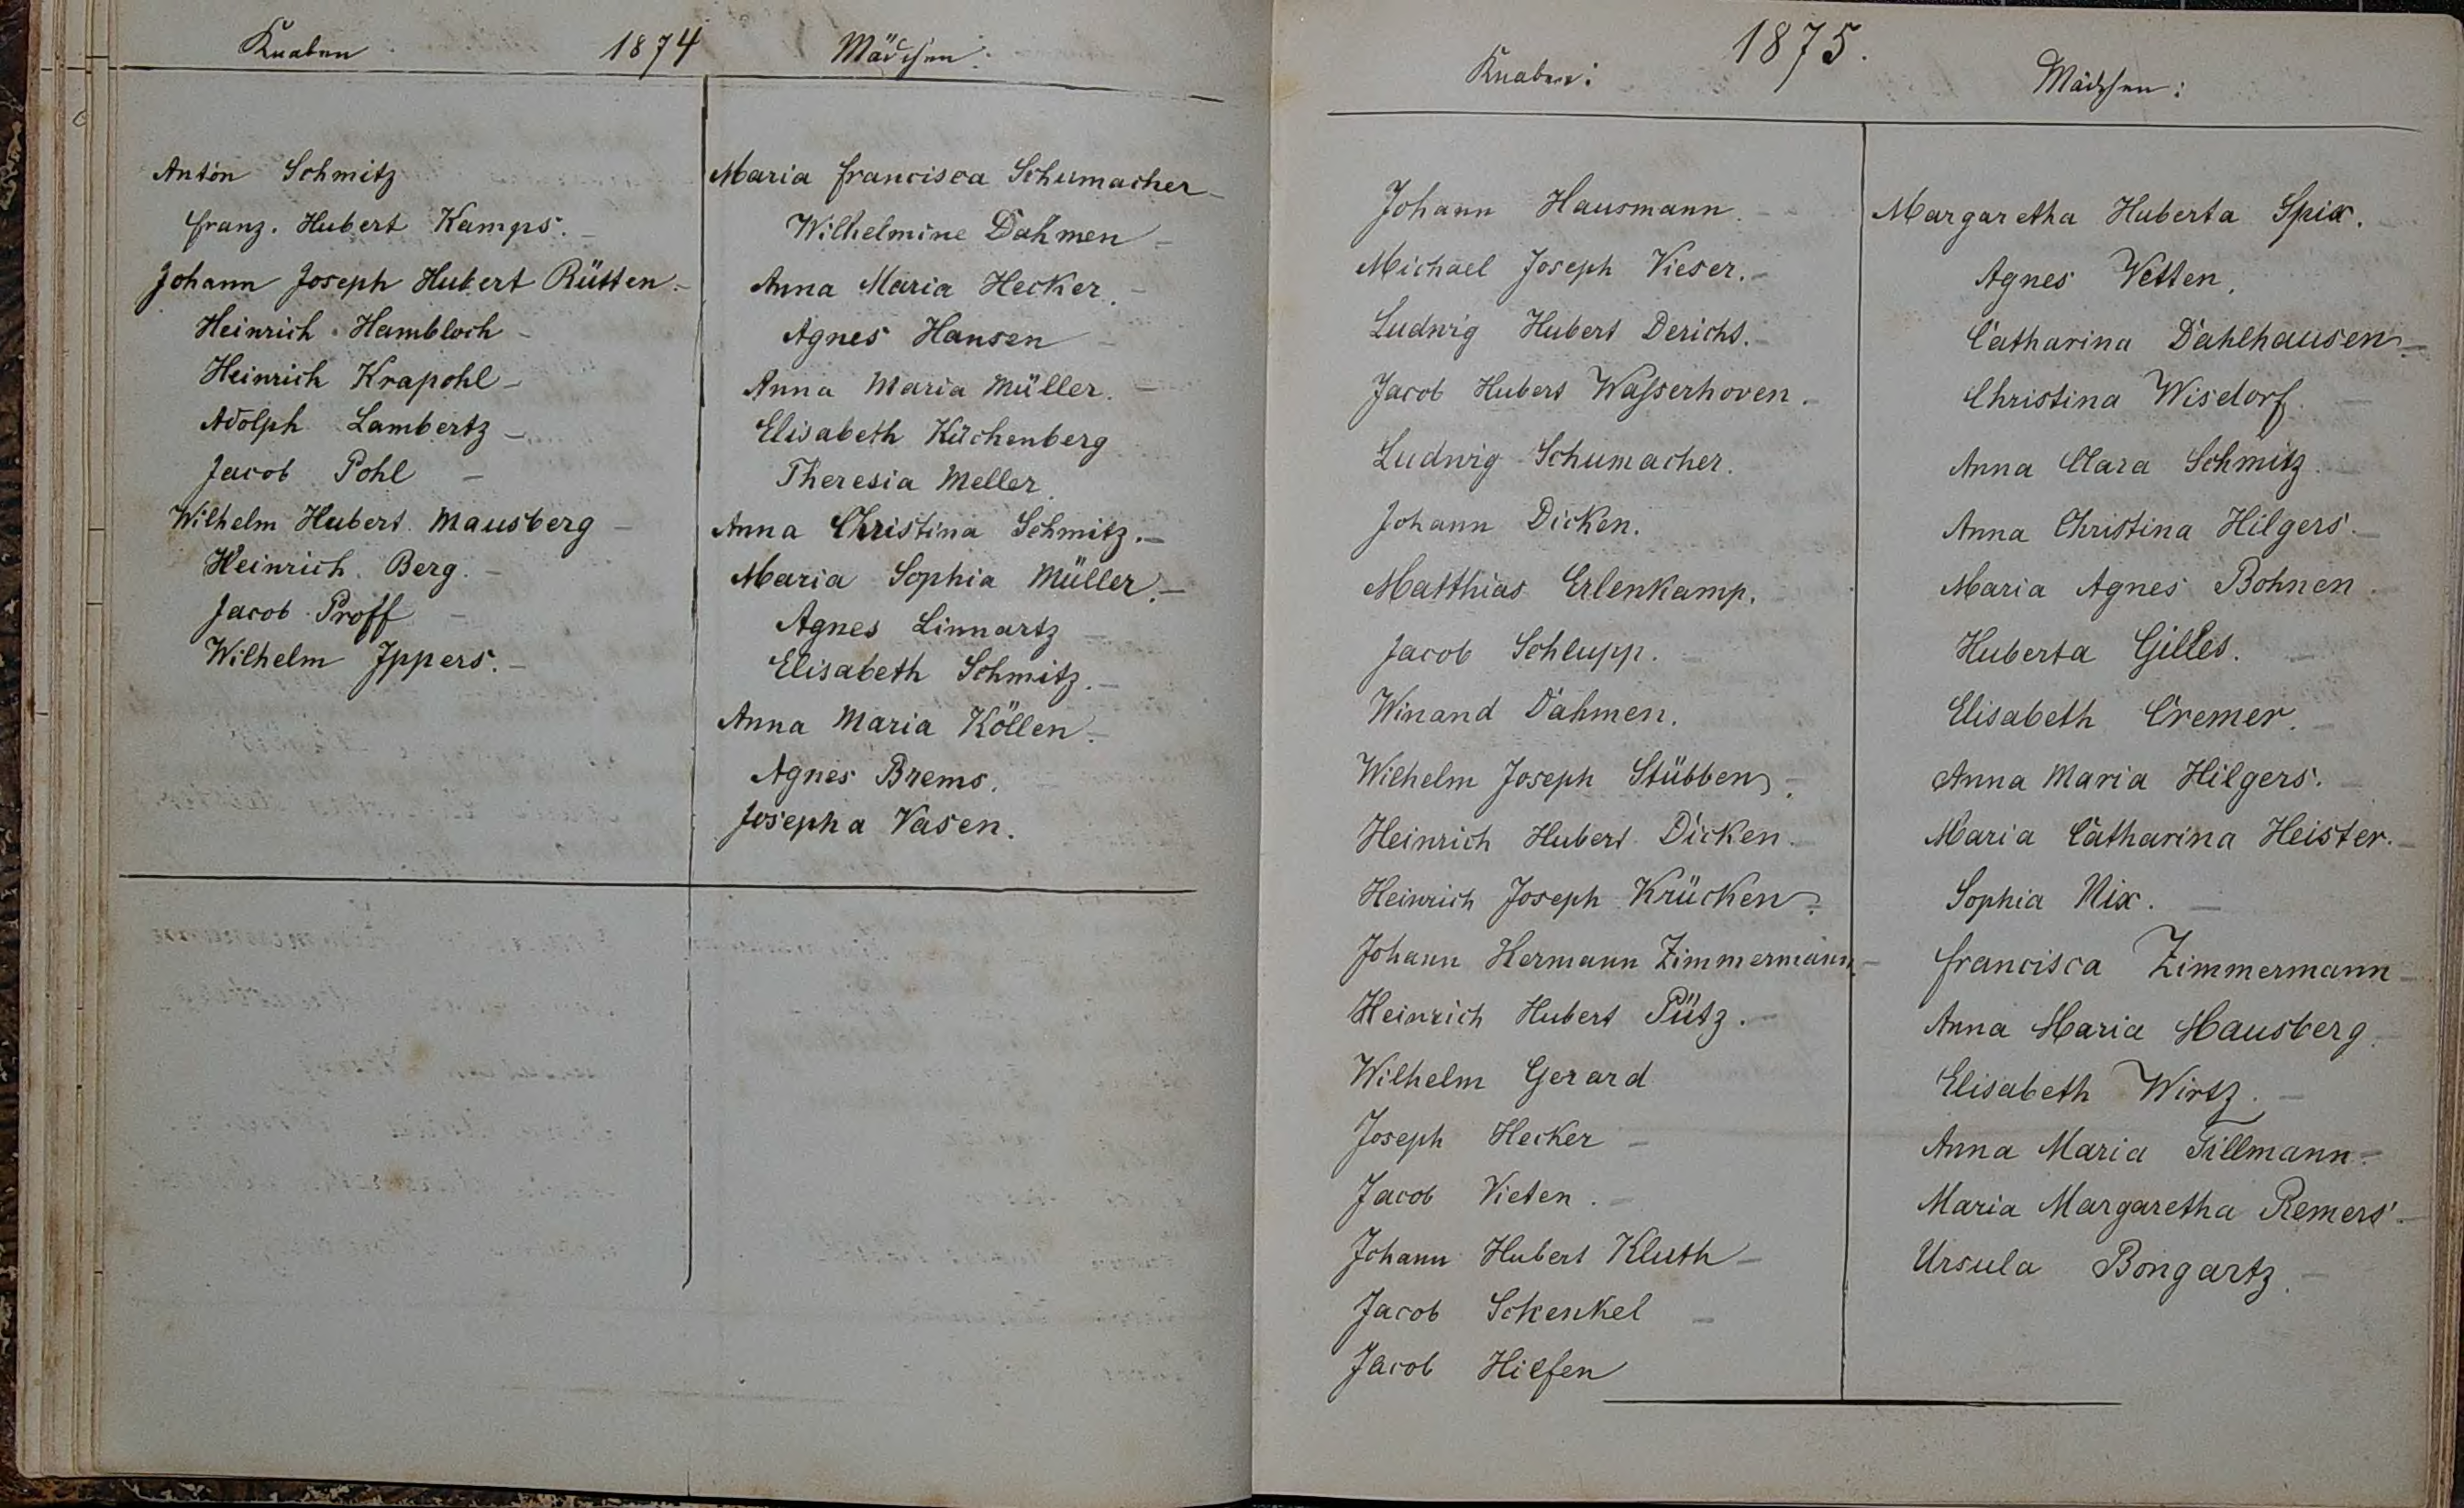 Knaben 1874 Mädchen.
Anton Schmitz
Franz. Hubert Kamps.
Johann Joseph Hubert Rütten.
Heinrich Hambloch
Heinrich Krapohl
Adolph Lambertz
Jacob Pohl
Wilhelm Hubert Mausberg
Heinrich Berg.
Jacob Proff
Wilhelm Ippers.
Maria Francisca Schumacher
Wilhelmine Dahmen
Anna Maria Hecker.
Agnes Hansen
Anna Maria Müller.
Elisabeth Küchenberg
Theresia Meller.
Anna Christina Schmitz.
Maria Sophia Müller.
Agnes Linnartz
Elisabeth Schmitz.
Anna Maria Köllen.
Agnes Brems.
Josepha Vasen.
1875.
Knaben: Mädchen:
Johann Hausmann.
Michael Joseph Vieser.
Ludwig Hubert Derichs.
Jacob Hubert Wasserhoven.
Ludwig Schumacher.
Johann Dicken.
Matthias Erlenkamp.
Jacob Schlupp.
Winand Dahmen.
Wilhelm Joseph Stübben.
Heinrich Hubert Dicken.
Heinrich Joseph Krücken.
Johann Hermann Zimmermann
Heinrich Hubert Pütz.
Wilhelm Gerard
Joseph Hecker
Jacob Vieten.
Johann Hubert Kluth
Jacob Schenkel
Jacob Hilfen
Margaretha Huberta Spix.
Agnes Vetten.
Catharina Dahlhausen.
Christina Wisdorf.
Anna Clara Schmitz.
Anna Christina Hilgers.
Maria Agnes Bohnen.
Huberta Gilles.
Elisabeth Cremer.
Anna Maria Hilgers.
Maria Catharina Heister.
Sophia Nix.
Francisca Zimmermann
Anna Maria Mausberg.
Elisabeth Wirtz.
Anna Maria Tillmann.
Maria Margaretha Remers.
Ursula Bongartz.